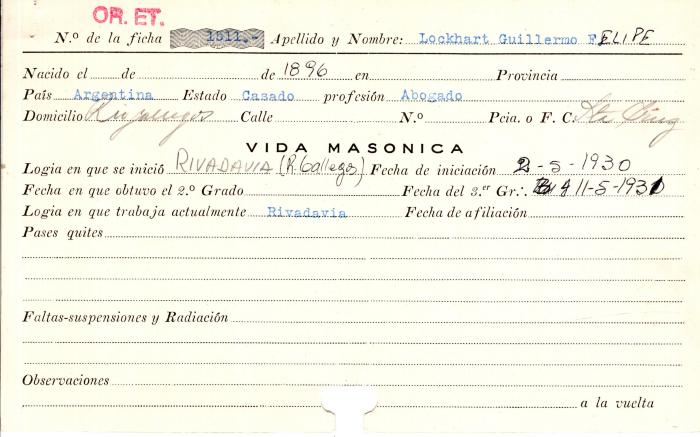 OR. ET.
N.º de la ficha 1511.- Apellido y Nombre: Lockhart Guillermo FELIPE
Nacido el de de 1896 en Provincia
País Argentina Estado Casado profesión Abogado
Domicilio R. Gallegos Calle N.º Pcia. o F. C. Sta Cruz
VIDA MASONICA
Logia en que se inició RIVADAVIA (R. Gallegos) Fecha de iniciación 2-5-1930
Fecha en que obtuvo el 2.º Grado Fecha del 3.er Gr∴ 11-5-1931
Logia en que trabaja actualmente Rivadavia Fecha de afiliación
Pases quites
Faltas-suspensiones y Radiación
Observaciones
a la vuelta